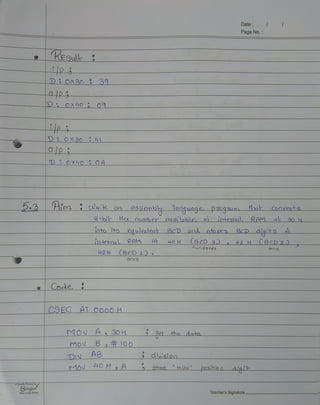 Date : / /
Page No. :
* Result :
i/p :
D : 0x30 : 39
o/p :
D : 0x40 : 09
i/p :
D : 0x30 : 41
o/p :
D : 0x40 : 0A
5.3 Aim : Write an assembly language program that converts
8-bit Hex number available in internal RAM at 30 H
into its equivalent BCD and stores BCD digits in
internal RAM at 40H (BCD 3), 41 H (BCD 2),
hundreds tens
42H (BCD 1).
ones
* Code :
CSEG AT 0000H
MOV A, 30H ; get the data
MOV B, #100
DIV AB ; division
MOV 40H, A ; store "100s" position digit
Teacher's Signature